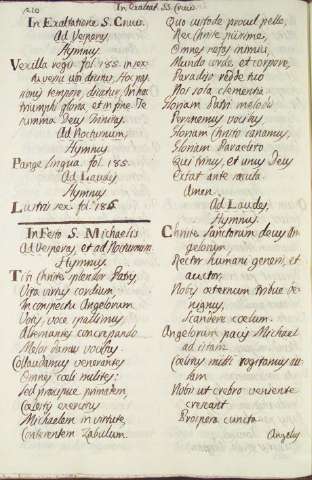 220
In Exaltat. S. Crucis
In Exaltatione S. Crucis.
Ad Vesperas
Hymnus
Vexilla regis fol. 185. in sex-
Pange lingua fol. 185.
Ad Laudes
Hymnus
Lustris sex fol. 186
In Festo S. Michaelis
Ad Vesperas, et ad Nocturnum
Hymnus
Te Christe splendor Patris,
Vita virtus cordium,
In conspectu Angelorum
Votis, voce psallimus
Alternantes concrepando
Melos damus vocibus
Collaudamus venerantes
Omnes cœli milites:
Sed præcipue primatem
Cœlestis exercitus
Michaelem in virtute,
Conterentem Zabulum.
Quo custode procul pelle,
Rex Christe piissime,
Omne nefas inimici,
Mundo corde et corpore,
Paradiso redde tuo
Nos sola clementia.
Gloriam Patri melodis
Personemus vocibus
Gloriam Christo canamus,
Gloriam Paracleto
Qui trinus, et unus Deus
Extat ante sæcula
Amen.
Ad Laudes,
Hymnus.
Christe sanctorum decus An-
gelorum,
Rector humani generis, et
auctor,
Nobis æternum tribue be-
nignus,
Scandere cœlum.
Angelorum pacis Michael
ad istam
Cœlitus mitti rogitamus au-
lam
Nobis ut crebro veniente
crescant
Prospera cuncta.
Angelus